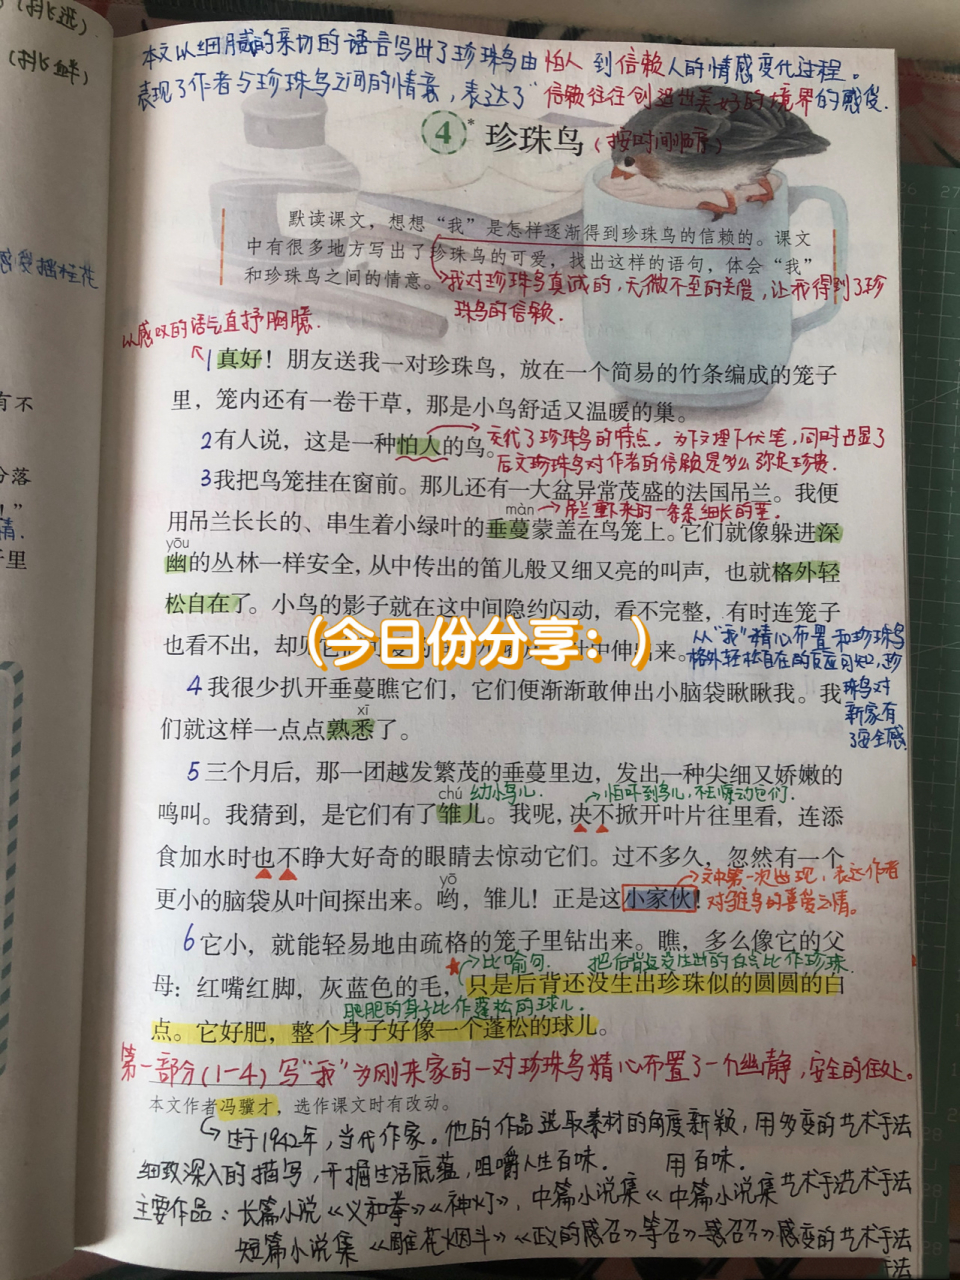 (挑选)
(挑衅)
本文以细腻的亲切的语言写出了珍珠鸟由怕人到信赖人的情感变化过程。
表现了作者与珍珠鸟之间的情意，表达了"信赖往往创造出美好的境界的感受.
4* 珍珠鸟(按时间顺序)
默读课文，想想“我”是怎样逐渐得到珍珠鸟的信赖的。课文
中有很多地方写出了珍珠鸟的可爱，找出这样的语句，体会“我”
和珍珠鸟之间的情意。
我对珍珠鸟真诚的，无微不至的关爱，让我得到了珍
珠鸟的信赖.
以感叹的语气直抒胸臆.
1真好！朋友送我一对珍珠鸟，放在一个简易的竹条编成的笼子
里，笼内还有一卷干草，那是小鸟舒适又温暖的巢。
2有人说，这是一种怕人的鸟。
交代了珍珠鸟的特点，为下文埋下伏笔，同时凸显了
后文珍珠鸟对作者的信赖是多么弥足珍贵.
3我把鸟笼挂在窗前。那儿还有一大盆异常茂盛的法国吊兰。我便
màn
吊兰垂下来的一条条细长的茎.
用吊兰长长的、串生着小绿叶的垂蔓蒙盖在鸟笼上。它们就像躲进深
yōu
幽的丛林一样安全，从中传出的笛儿般又细又亮的叫声，也就格外轻
松自在了。小鸟的影子就在这中间隐约闪动，看不完整，有时连笼子
也看不出，却见它们
中伸出来。
(今日份分享：)
从“我”精心布置和珍珠鸟
格外轻松自在的反应可知,珍
珠鸟对
新家有
了安全感
4我很少扒开垂蔓瞧它们，它们便渐渐敢伸出小脑袋瞅瞅我。我
xī
们就这样一点点熟悉了。
5三个月后，那一团越发繁茂的垂蔓里边，发出一种尖细又娇嫩的
chú 幼小鸟儿.
怕吓到鸟儿,不去惊动它们.
鸣叫。我猜到，是它们有了雏儿。我呢，决不掀开叶片往里看，连添
食加水时也不睁大好奇的眼睛去惊动它们。过不多久，忽然有一个
yō
更小的脑袋从叶间探出来。哟，雏儿！正是这小家伙！
文中第一次出现，表达作者
对雏鸟的喜爱之情。
6它小，就能轻易地由疏格的笼子里钻出来。瞧，多么像它的父
比喻句. 把后背还没生出的白点比作珍珠.
母：红嘴红脚，灰蓝色的毛，只是后背还没生出珍珠似的圆圆的白
肥肥的身子比作蓬松的球儿.
点。它好肥，整个身子好像一个蓬松的球儿。
第一部分(1-4)写“我”为刚来家的一对珍珠鸟精心布置了一个幽静，安全的住处。
本文作者冯骥才，选作课文时有改动。
生于1942年，当代作家。他的作品选取素材的角度新颖，用多变的艺术手法
细致深入的描写，开掘生活底蕴，咀嚼人生百味. 用百味.
主要作品：长篇小说《义和拳》《神灯》，中篇小说集《中篇小说集艺术手法艺术手法
短篇小说集《雕花烟斗》《政的感召》等召》感召召》感变的艺术手法
手法